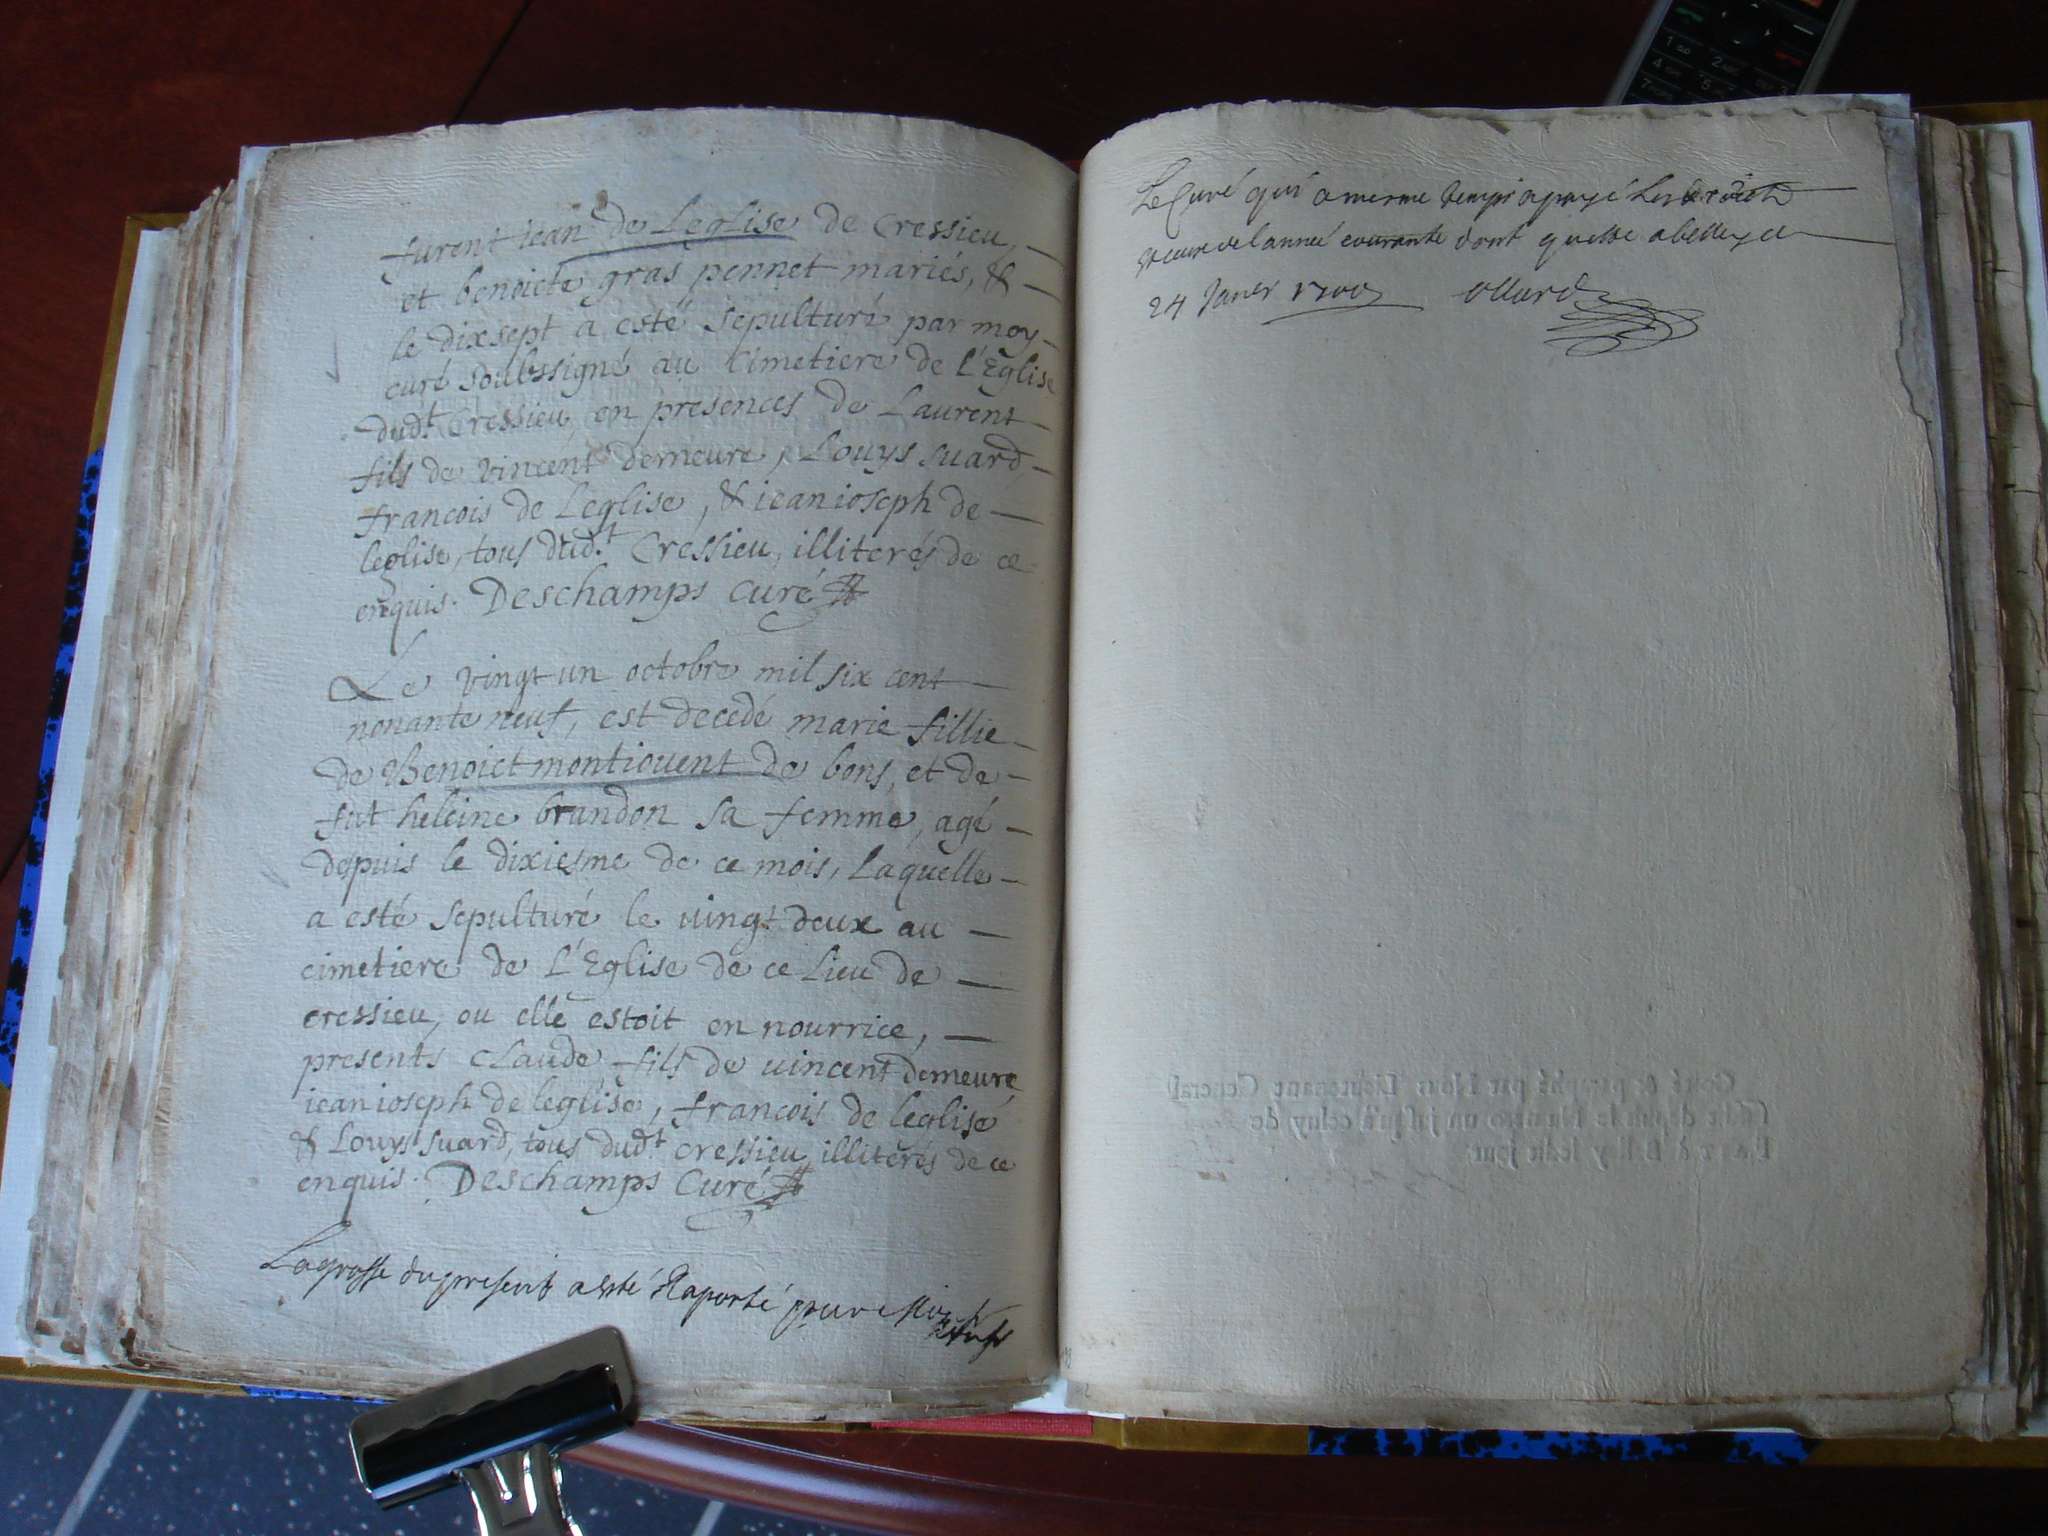 furent iean de Leglise de Cressieu,
et benoicte gras pennet mariés, &
le dixsept a esté sepulturé par moy
curé soubssigné au Cimetiere de l'Eglise
dud.t Cressieu, en presences de Laurent
fils de vincent demeure, Louys suard
francois de Leglise, & iean ioseph de
leglise, tous dud.t Cressieu, illiterés de ce
enquis. Deschamps Curé
Le vingt un octobre mil six cent
nonante neuf, est decedé marie fillie
de Benoict montiouent de bons, et de
fut heleine brandon sa femme, agé
depuis le dixiesme de ce mois, Laquelle
a esté sepulturé le vingt deux au
cimetiere de L'Eglise de ce Lieu de
cressieu, ou elle estoit en nourrice,
presents Claude fils de vincent demeure
iean ioseph de leglise, francois de leglise
& Louys suard, tous dud.t cressieu illiterés de ce
enquis. Deschamps Curé
La grosse du present a esté Raporté par
Le Curé qui a mesme temps a payé Les droicts
de l'année courante dont quitte a belley ce
24 Janer 1700 Ollard
Cotté & paraphé par Nous Lieutenant General
depuis le Numero un jusqu'à celuy de
Fait à Belley ledit jour